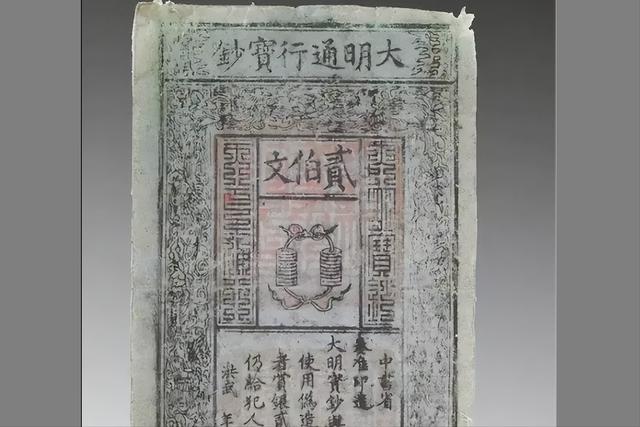 大明通行寶鈔
貳伯文
中書省
奏准印造
大明寶鈔與
使用偽造
者賞銀貳
仍給犯人
洪武 年